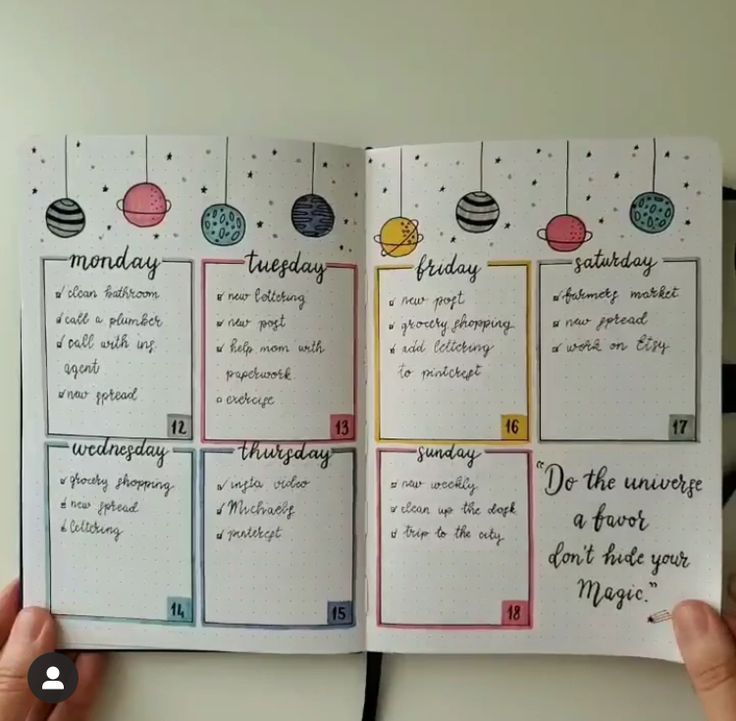 monday
clean bathroom
call a plumber
call with ins.
agent
new spread
12
tuesday
new lettering
new post
help mom with
paperwork
exercise
13
wednesday
grocery shopping
new spread
lettering
14
thursday
insta video
Michaels
pinterest
15
friday
new post
grocery shopping
add lettering
to pinterest
16
saturday
farmers market
new spread
work on Etsy
17
sunday
new weekly
clean up the desk
trip to the city
18
"Do the universe
a favor
don't hide your
Magic."